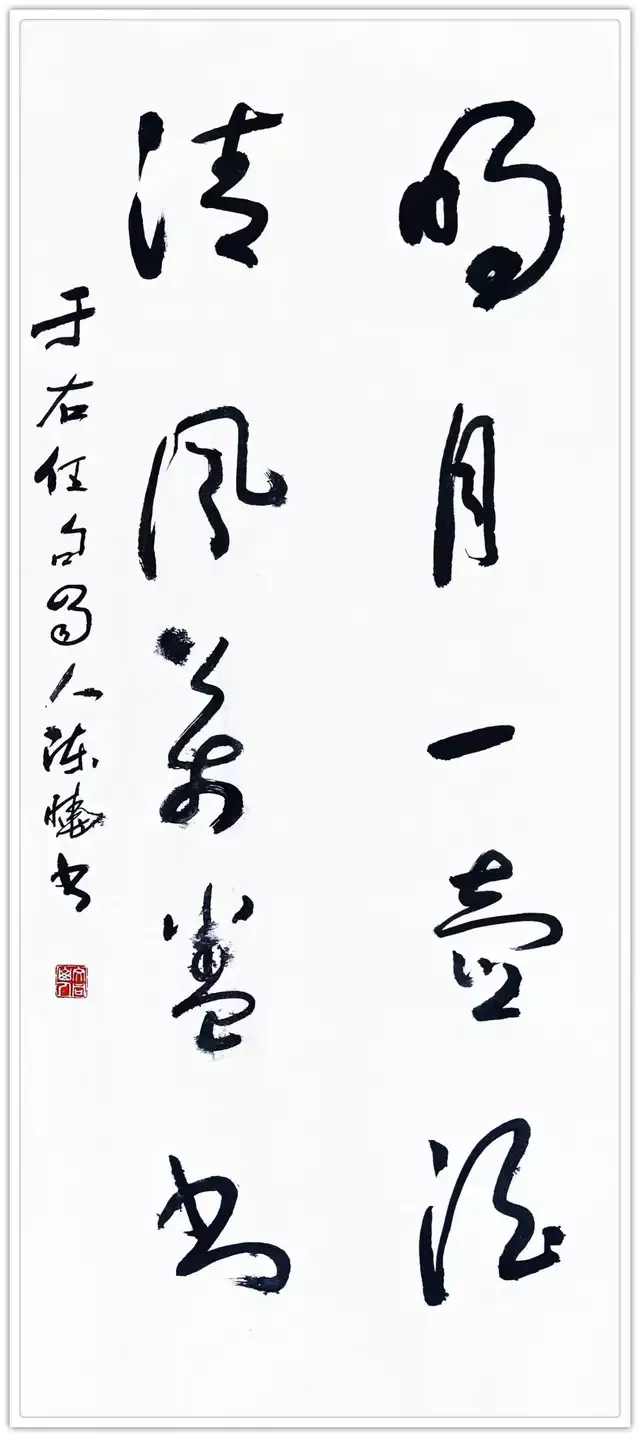 明月一壶酒
清风萬卷书
于右任句蜀人陈书